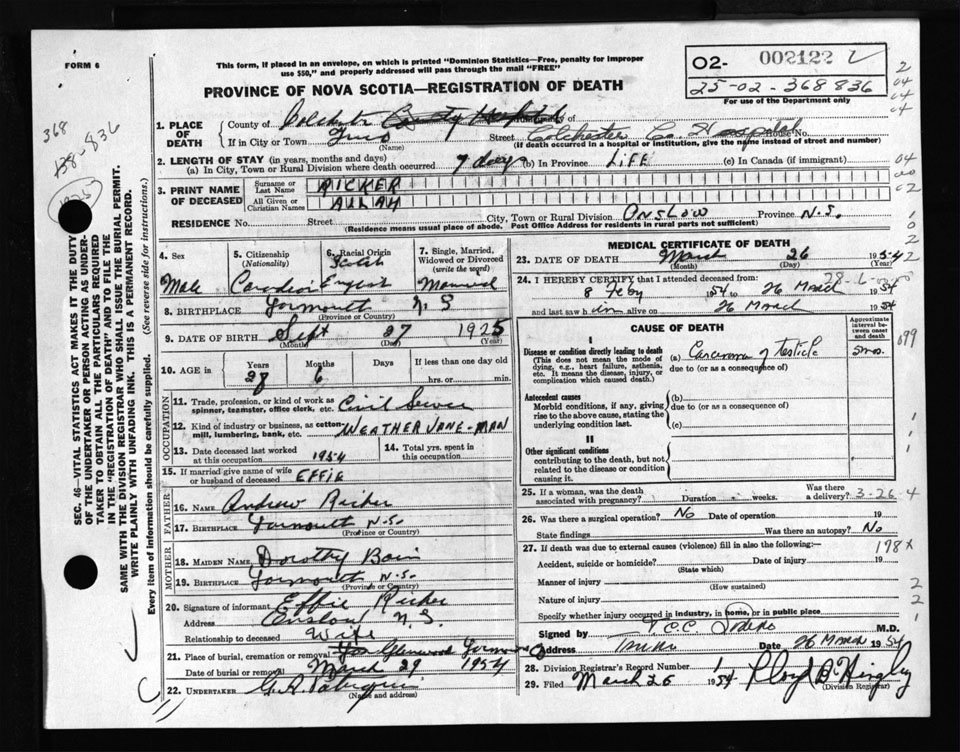 FORM 6
This form, if placed in an envelope, on which is printed "Dominion Statistics—Free, penalty for improper
use $50," and properly addressed will pass through the mail "FREE"
PROVINCE OF NOVA SCOTIA—REGISTRATION OF DEATH
O2- 002122
25-02-368836
For use of the Department only
368
836
1925
1. PLACE OF DEATH
County of Colchester County
If in City or Town Truro Street Colchester Co. Hospital House No.
(Name) (If death occurred in a hospital or institution, give the name instead of street and number)
2. LENGTH OF STAY (in years, months and days)
(a) In City, Town or Rural Division where death occurred 7 days (b) in Province LIFE (c) In Canada (if immigrant)
3. PRINT NAME OF DECEASED
Surname or Last Name RICKER
All Given or Christian Names ALLAN
RESIDENCE No. Street City, Town or Rural Division ONSLOW Province N.S.
(Residence means usual place of abode. Post Office Address for residents in rural parts not sufficient)
4. Sex Male
5. Citizenship (Nationality) Canadian
6. Racial Origin English
7. Single, Married, Widowed or Divorced (write the word) Married
8. BIRTHPLACE Yarmouth N S
(Province or Country)
9. DATE OF BIRTH Sept 27 1925
(Month) (Day) (Year)
10. AGE in Years 28 Months 6 Days If less than one day
hrs. or min.
OCCUPATION
11. Trade, profession or kind of work as spinner, teamster, office clerk, etc. Civil Service
12. Kind of industry or business, as cotton mill, lumbering, bank, etc. WEATHER VANE-MAN
13. Date deceased last worked at this occupation 1954
14. Total yrs. spent in this occupation
15. If married give name of wife or husband of deceased EFFIE
FATHER
16. NAME Andrew Ricker
17. BIRTHPLACE Yarmouth N.S.
(Province or Country)
MOTHER
18. MAIDEN NAME Dorothy Bain
19. BIRTHPLACE Yarmouth N.S.
(Province or Country)
20. Signature of informant Effie Ricker
Address Onslow N.S.
Relationship to deceased Wife
21. Place of burial, cremation or removal Glenwood Yarmouth Co
Date of burial or removal March 29 1954
22. UNDERTAKER
(Name and address)
SEC. 46—VITAL STATISTICS ACT MAKES IT THE DUTY
OF THE UNDERTAKER OR PERSON ACTING AS UNDERTAKER
TO OBTAIN ALL THE PARTICULARS REQUIRED
IN THE "REGISTRATION OF DEATH" AND TO FILE THE
SAME WITH THE DIVISION REGISTRAR WHO SHALL ISSUE THE BURIAL PERMIT.
WRITE PLAINLY WITH UNFADING INK. THIS IS A PERMANENT RECORD.
Every item of information should be carefully supplied. (See reverse side for instructions.)
MEDICAL CERTIFICATE OF DEATH
23. DATE OF DEATH March 26 1954
(Month) (Day) (Year)
24. I HEREBY CERTIFY that I attended deceased from:
8 Feby 1954 to 26 March 1954
and last saw him alive on 26 March 1954
CAUSE OF DEATH
Approximate interval between onset and death
I
Disease or condition directly leading to death (a) Carcinoma of Testicle 5 mos.
(This does not mean the mode of dying, e.g., heart failure, asthenia, etc. It means the disease, injury, or complication which caused death.)
due to (or as a consequence of)
Antecedent causes
Morbid conditions, if any, giving rise to the above cause, stating the underlying condition last.
(b)
due to (or as a consequence of)
(c)
II
Other significant conditions
contributing to the death, but not related to the disease or condition causing it.
25. If a woman, was the death associated with pregnancy? Duration weeks. Was there a delivery? 3-26 4
26. Was there a surgical operation? No Date of operation 19
State findings Was there an autopsy? No
27. If death was due to external causes (violence) fill in also the following:— 178x
Accident, suicide or homicide? Date of injury 19
(State which)
Manner of injury
(How sustained)
Nature of injury
Specify whether injury occurred in industry, in home, or in public place
Signed by M.D.
Address Truro Date 26 March 1954
28. Division Registrar's Record Number
29. Filed March 26 1954 Lloyd B Hingley
(Division Registrar)